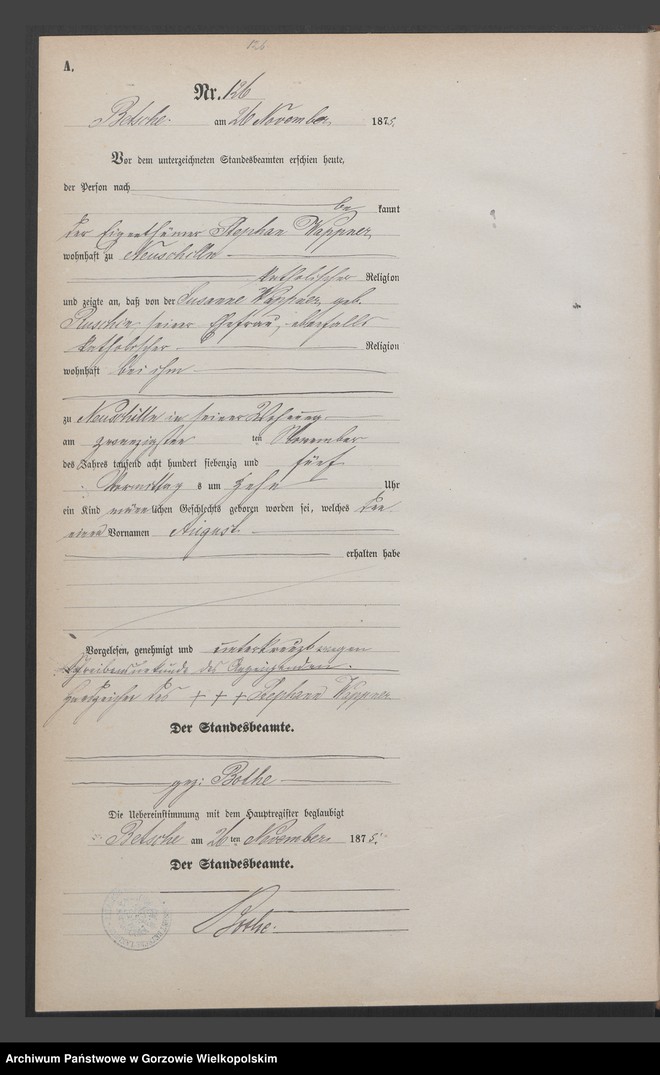 126.
A.
Nr. 126
Betsche. am 26 November 1875.
Vor dem unterzeichneten Standesbeamten erschien heute,
der Person nach
be kannt
der Eigenthümer Stephan Wappner
wohnhaft zu Neuschilln
katholischer Religion
und zeigte an, daß von der Susanne Wappner, geb.
seiner Ehefrau, ebenfalls
katholischer Religion
wohnhaft bei ihm
zu Neuschilln in seiner Wohnung
am zwanzigsten ten November
des Jahres tausend acht hundert siebenzig und fünf
Vormittag s um zehn Uhr
ein Kind männlichen Geschlechts geboren worden sei, welches den
einen Vornamen August
erhalten habe
Vorgelesen, genehmigt und unterkreuzt wegen
des Anzeigenden.
Handzeichen des + + + Stephann Wappner
Der Standesbeamte.
gez: Bothe
Die Uebereinstimmung mit dem Hauptregister beglaubigt
Betsche am 26 ten November 1875.
Der Standesbeamte.
Bothe.
Archiwum Państwowe w Gorzowie Wielkopolskim